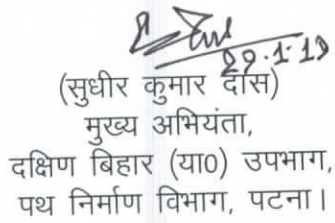 29.1.13
(सुधीर कुमार दास)
मुख्य अभियंता,
दक्षिण बिहार (या0) उपभाग,
पथ निर्माण विभाग, पटना।